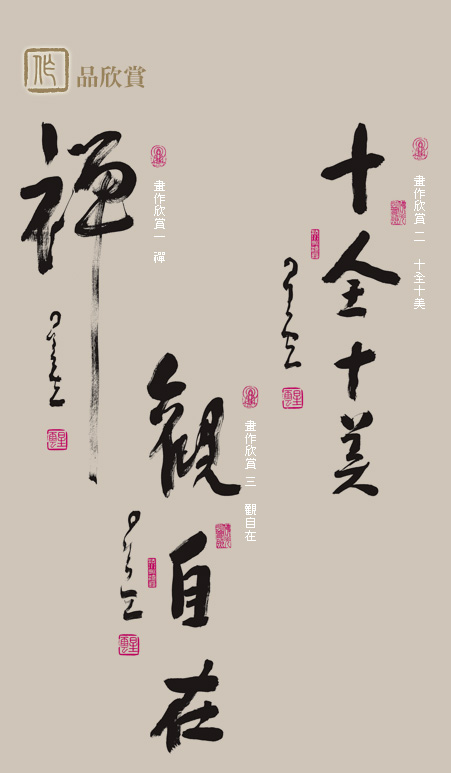 作品欣賞
畫作欣賞二 十全十美
十全十美
畫作欣賞一 禪
禪
畫作欣賞 三 觀自在
觀自在